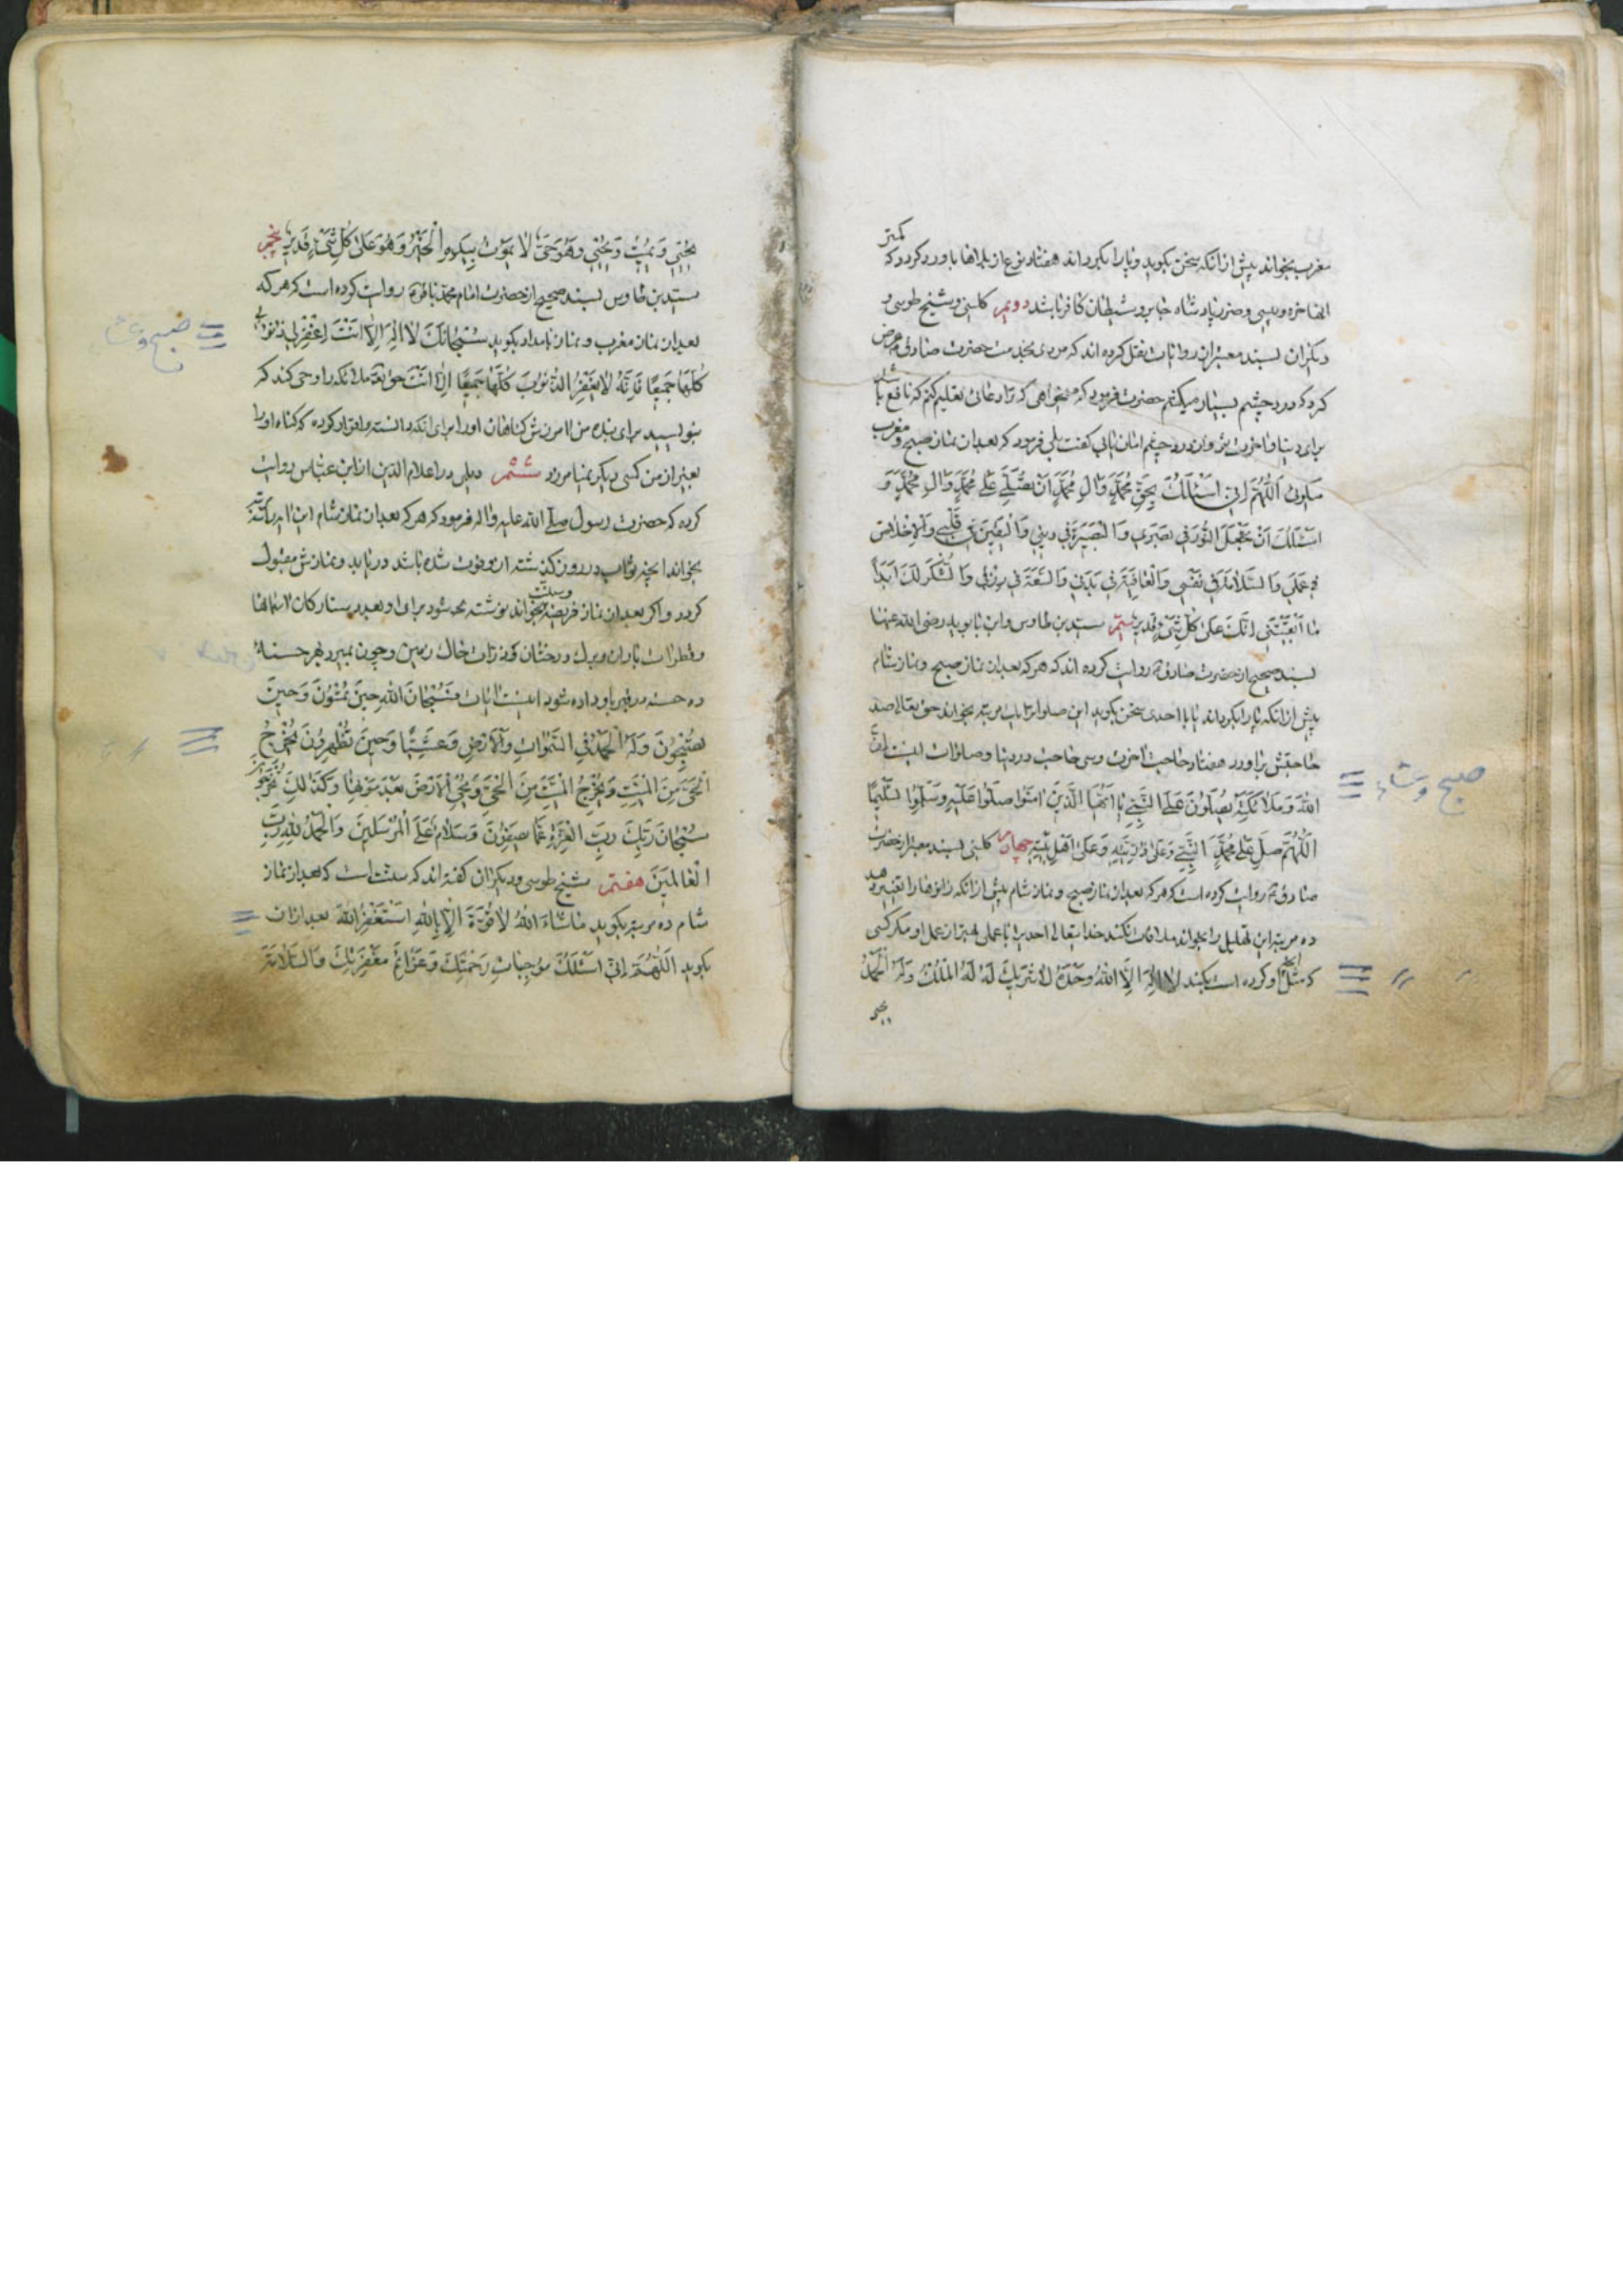 مغرب بخواند پیش از انکه سخن بکوید و پا را بکرداند هفتاد نوع از بلاها باو رد کردد که کمتر
انها خوره و پیسی و ضرر پادشاه جابر و شیطان کافر باشد دویم کلینی و شیخ طوسی و
دیکران بسند معتبر ان روایات نقل کرده اند که مردی بخدمت حضرت صادق عرض
کرد که درد چشم بسیار میکشم حضرت فرمود که میخواهی که ترا دعائی تعلیم کنم که نافع باشد
برای دنیا و اخرت تو و از درد چشم امان یابی کفت بلی فرمود که بعد از نماز صبح و مغرب
میکوئی اَللّهُمَّ اِنّی اَسْئَلُکَ بِحَقِّ مُحَمَّدٍ وَالِ مُحَمَّدٍ اَنْ تُصَلِّیَ عَلی مُحَمَّدٍ وَالِ مُحَمَّدٍ وَ
اَسْئَلُکَ اَنْ تَجْعَلَ النُّورَ فی بَصَری وَالْبَصیرَةَ فی دینی وَالْیَقینَ فی قَلْبی وَالْاِخْلاصَ
فی عَمَلی وَالسَّلامَةَ فی نَفْسی وَالْعافِیَةَ فی بَدَنی وَالسَّعَةَ فی رِزْقی وَالشُّکْرَ لَکَ اَبَدًا
ما اَبْقَیْتَنی اِنَّکَ عَلی کُلِّ شَیْءٍ قَدیر سیّم سید بن طاوس و ابن بابویه رضی الله عنهما
بسند صحیح از حضرت صادق روایت کرده اند که هر که بعد از نماز صبح و نماز شام
پیش از انکه پا را بکرداند یا با احدی سخن بکوید این صلوات را یک مرتبه بخواند حق تعالی صد
حاجتش براورد هفتاد حاجت اخرت و سی حاجت در دنیا و صلوات اینست اِنَّ
اللهَ وَمَلائِکَتَهُ یُصَلُّونَ عَلَی النَّبِیِّ یا اَیُّهَا الَّذینَ امَنُوا صَلُّوا عَلَیْهِ وَسَلِّمُوا تَسْلیمًا
اَللّهُمَّ صَلِّ عَلی مُحَمَّدٍ النَّبِیِّ وَعَلی ذُرِّیَّتِهِ وَعَلی اَهْلِ بَیْتِهِ چهارم کلینی بسند معتبر از حضرت
صادق روایت کرده است که هر که بعد از نماز صبح و نماز شام پیش از انکه زانوها را تغییر دهد
ده مرتبه این تهلیل را بخواند ملاقات نکند خدایتعالی احدی با عملی بهتر از عمل او مکر کسی
که مثل او کرده است بکند لا اِلهَ اِلَّا اللهُ وَحْدَهُ لا شَریکَ لَهُ لَهُ الْمُلْکُ وَلَهُ الْحَمْدُ
یحیی
صبح و عشاء
یُحْیی وَیُمیتُ وَیُحْیی وَهُوَ حَیٌّ لا یَمُوتُ بِیَدِهِ الْخَیْرُ وَهُوَ عَلی کُلِّ شَیْءٍ قَدیرٌ پنجم
سید بن طاوس بسند صحیح از حضرت امام محمد باقر روایت کرده است که هر که
بعد از نماز مغرب و نماز بامداد بکوید سُبْحانَکَ لا اِلهَ اِلّا اَنْتَ اِغْفِرْ لی ذُنُوبی
کُلَّها جَمیعًا فَاِنَّهُ لا یَغْفِرُ الذُّنُوبَ کُلَّها جَمیعًا اِلّا اَنْتَ حق تعالی ملائکه را وحی کند که
بنویسید برای بنده من امرزش کناهان او را برای انکه دانسته و اقرار کرده که کناه او را
بغیر از من کسی دیکر نمیامرزد ششم دیلمی در اعلام الدین از ابن عباس روایت
کرده که حضرت رسول صلی الله علیه واله فرمود که هر که بعد از نماز شام این ایه را سه مرتبه
بخواند انچه ثواب در روز کذشته از او فوت شده باشد دریابد و نمازش مقبول
کردد و اکر بعد از نماز فریضه و سنت بخواند نوشته میشود برای او بعدد ستارکان اسمانها
و قطرات باران و برك درختان و ذرات خاك زمین و چون بمیرد بهر حسنه
ده حسنه در قبر باو داده شود اینست ایات فَسُبْحانَ اللهِ حینَ تُمْسُونَ وَحینَ
تُصْبِحُونَ وَلَهُ الْحَمْدُ فِی السَّمواتِ وَالْاَرْضِ وَعَشِیًّا وَحینَ تُظْهِرُونَ یُخْرِجُ
الْحَیَّ مِنَ الْمَیِّتِ وَیُخْرِجُ الْمَیِّتَ مِنَ الْحَیِّ وَیُحْیِی الْاَرْضَ بَعْدَ مَوْتِها وَکَذلِکَ تُخْرَجُونَ
سُبْحانَ رَبِّکَ رَبِّ الْعِزَّةِ عَمّا یَصِفُونَ وَسَلامٌ عَلَی الْمُرْسَلینَ وَالْحَمْدُ لِلّهِ رَبِّ
الْعالَمینَ هفتم شیخ طوسی و دیکران کفته اند که سنت است که بعد از نماز
شام ده مرتبه بکوید ماشاءَ اللهُ لا قُوَّةَ اِلّا بِاللهِ اَسْتَغْفِرُ اللهَ بعد از ان
بکوید اَللّهُمَّ اِنّی اَسْئَلُکَ مُوجِباتِ رَحْمَتِکَ وَعَزائِمَ مَغْفِرَتِکَ وَالسَّلامَةَ
صبح و عشاء